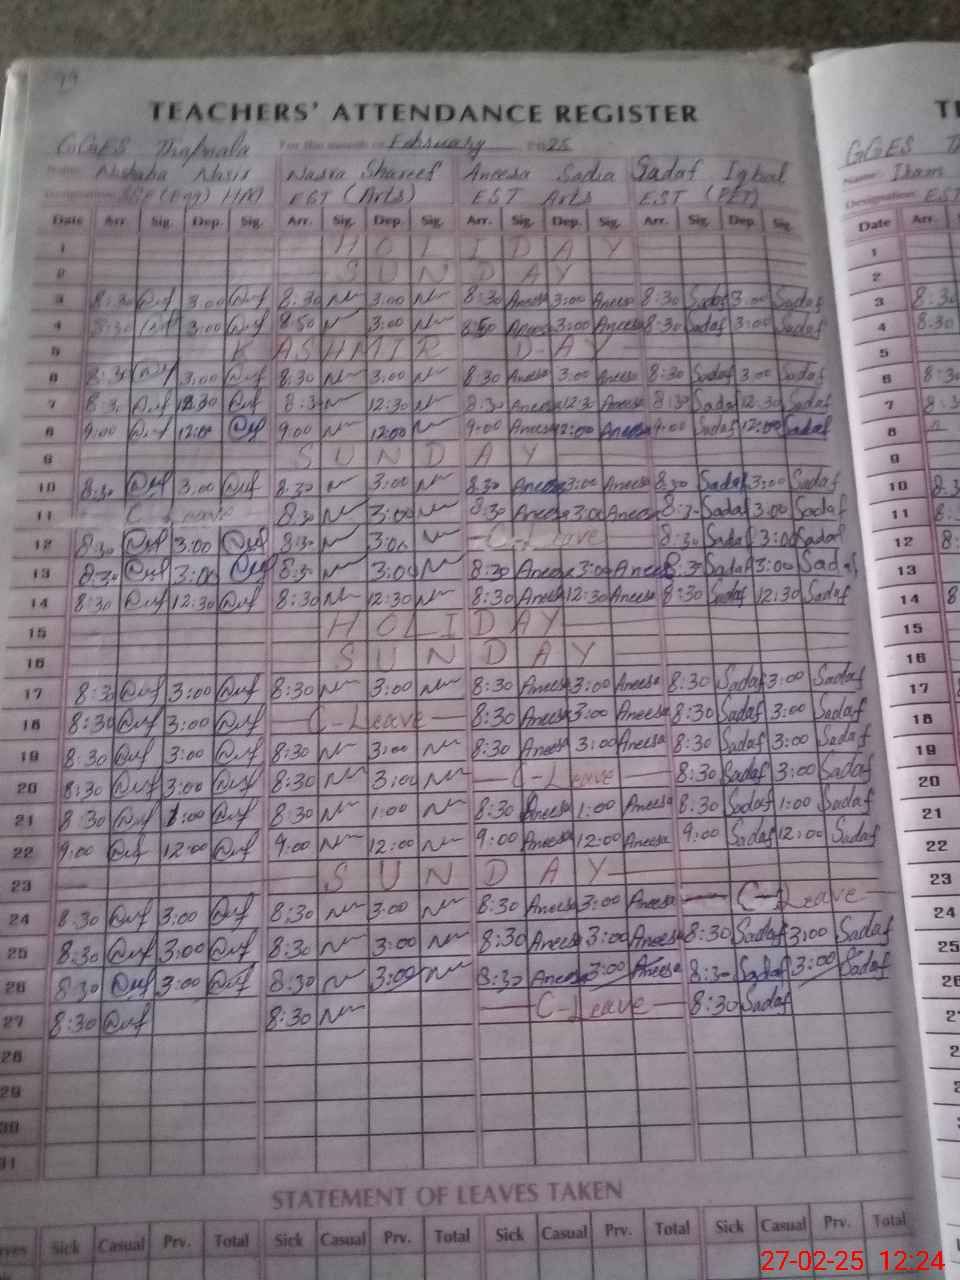 99
TEACHERS' ATTENDANCE REGISTER TE
GGES Thapnala For the month of February 2025 GGES Th
Name: Nisbaha Nasir Nasra Shareef Aneesa Sadia Sadaf Iqbal Name: Iram
Designation: SSE (Eng) HM EST (Arts) EST Arts EST (PET) Designation: EST
Date Arr. Sig. Dep. Sig. Arr. Sig. Dep. Sig. Arr. Sig. Dep. Sig. Arr. Sig. Dep. Sig. Date Arr.
1 HOLIDAY 1
2 SUNDAY 2
3 8:30 3:00 8:30 3:00 8:30 Aneesa 3:00 Aneesa 8:30 Sadaf 3:00 Sadaf 3 8:30
4 8:30 3:00 8:30 3:00 8:30 Aneesa 3:00 Aneesa 8:30 Sadaf 3:00 Sadaf 4 8:30
5 KASHMIR DAY 5
6 8:30 3:00 8:30 3:00 8:30 Aneesa 3:00 Aneesa 8:30 Sadaf 3:00 Sadaf 6 8:30
7 8:30 12:30 8:30 12:30 8:30 Aneesa 12:30 Aneesa 8:30 Sadaf 12:30 Sadaf 7 8:3
8 9:00 12:00 9:00 12:00 9:00 Aneesa 12:00 Aneesa 9:00 Sadaf 12:00 Sadaf 8
9 SUNDAY 9
10 8:30 3:00 8:30 3:00 8:30 Aneesa 3:00 Aneesa 8:30 Sadaf 3:00 Sadaf 10 8:3
11 C-Leave 8:30 3:00 8:30 Aneesa 3:00 Aneesa 8:3 Sadaf 3:00 Sadaf 11 8:
12 8:30 3:00 8:30 3:00 C-Leave 8:30 Sadaf 3:00 Sadaf 12 8:
13 8:30 3:00 8:30 3:00 8:30 Aneesa 3:00 Aneesa 8:30 Sadaf 3:00 Sadaf 13
14 8:30 12:30 8:30 12:30 8:30 Aneesa 12:30 Aneesa 8:30 Sadaf 12:30 Sadaf 14 8
15 HOLIDAY 15
16 SUNDAY 16
17 8:30 3:00 8:30 3:00 8:30 Aneesa 3:00 Aneesa 8:30 Sadaf 3:00 Sadaf 17
18 8:30 3:00 C-Leave 8:30 Aneesa 3:00 Aneesa 8:30 Sadaf 3:00 Sadaf 18
19 8:30 3:00 8:30 3:00 8:30 Aneesa 3:00 Aneesa 8:30 Sadaf 3:00 Sadaf 19
20 8:30 3:00 8:30 3:00 C-Leave 8:30 Sadaf 3:00 Sadaf 20
21 8:30 1:00 8:30 1:00 8:30 Aneesa 1:00 Aneesa 8:30 Sadaf 1:00 Sadaf 21
22 9:00 12:00 9:00 12:00 9:00 Aneesa 12:00 Aneesa 9:00 Sadaf 12:00 Sadaf 22
23 SUNDAY 23
24 8:30 3:00 8:30 3:00 8:30 Aneesa 3:00 Aneesa C-Leave 24
25 8:30 3:00 8:30 3:00 8:30 Aneesa 3:00 Aneesa 8:30 Sadaf 3:00 Sadaf 25
26 8:30 3:00 8:30 3:00 8:30 Aneesa 3:00 Aneesa 8:30 Sadaf 3:00 Sadaf 26
27 8:30 8:30 C-Leave 8:30 Sadaf 27
28
29
30
31
STATEMENT OF LEAVES TAKEN
Sick Casual Prv. Total Sick Casual Prv. Total Sick Casual Prv. Total Sick Casual Prv. Total
27-02-25 12:24